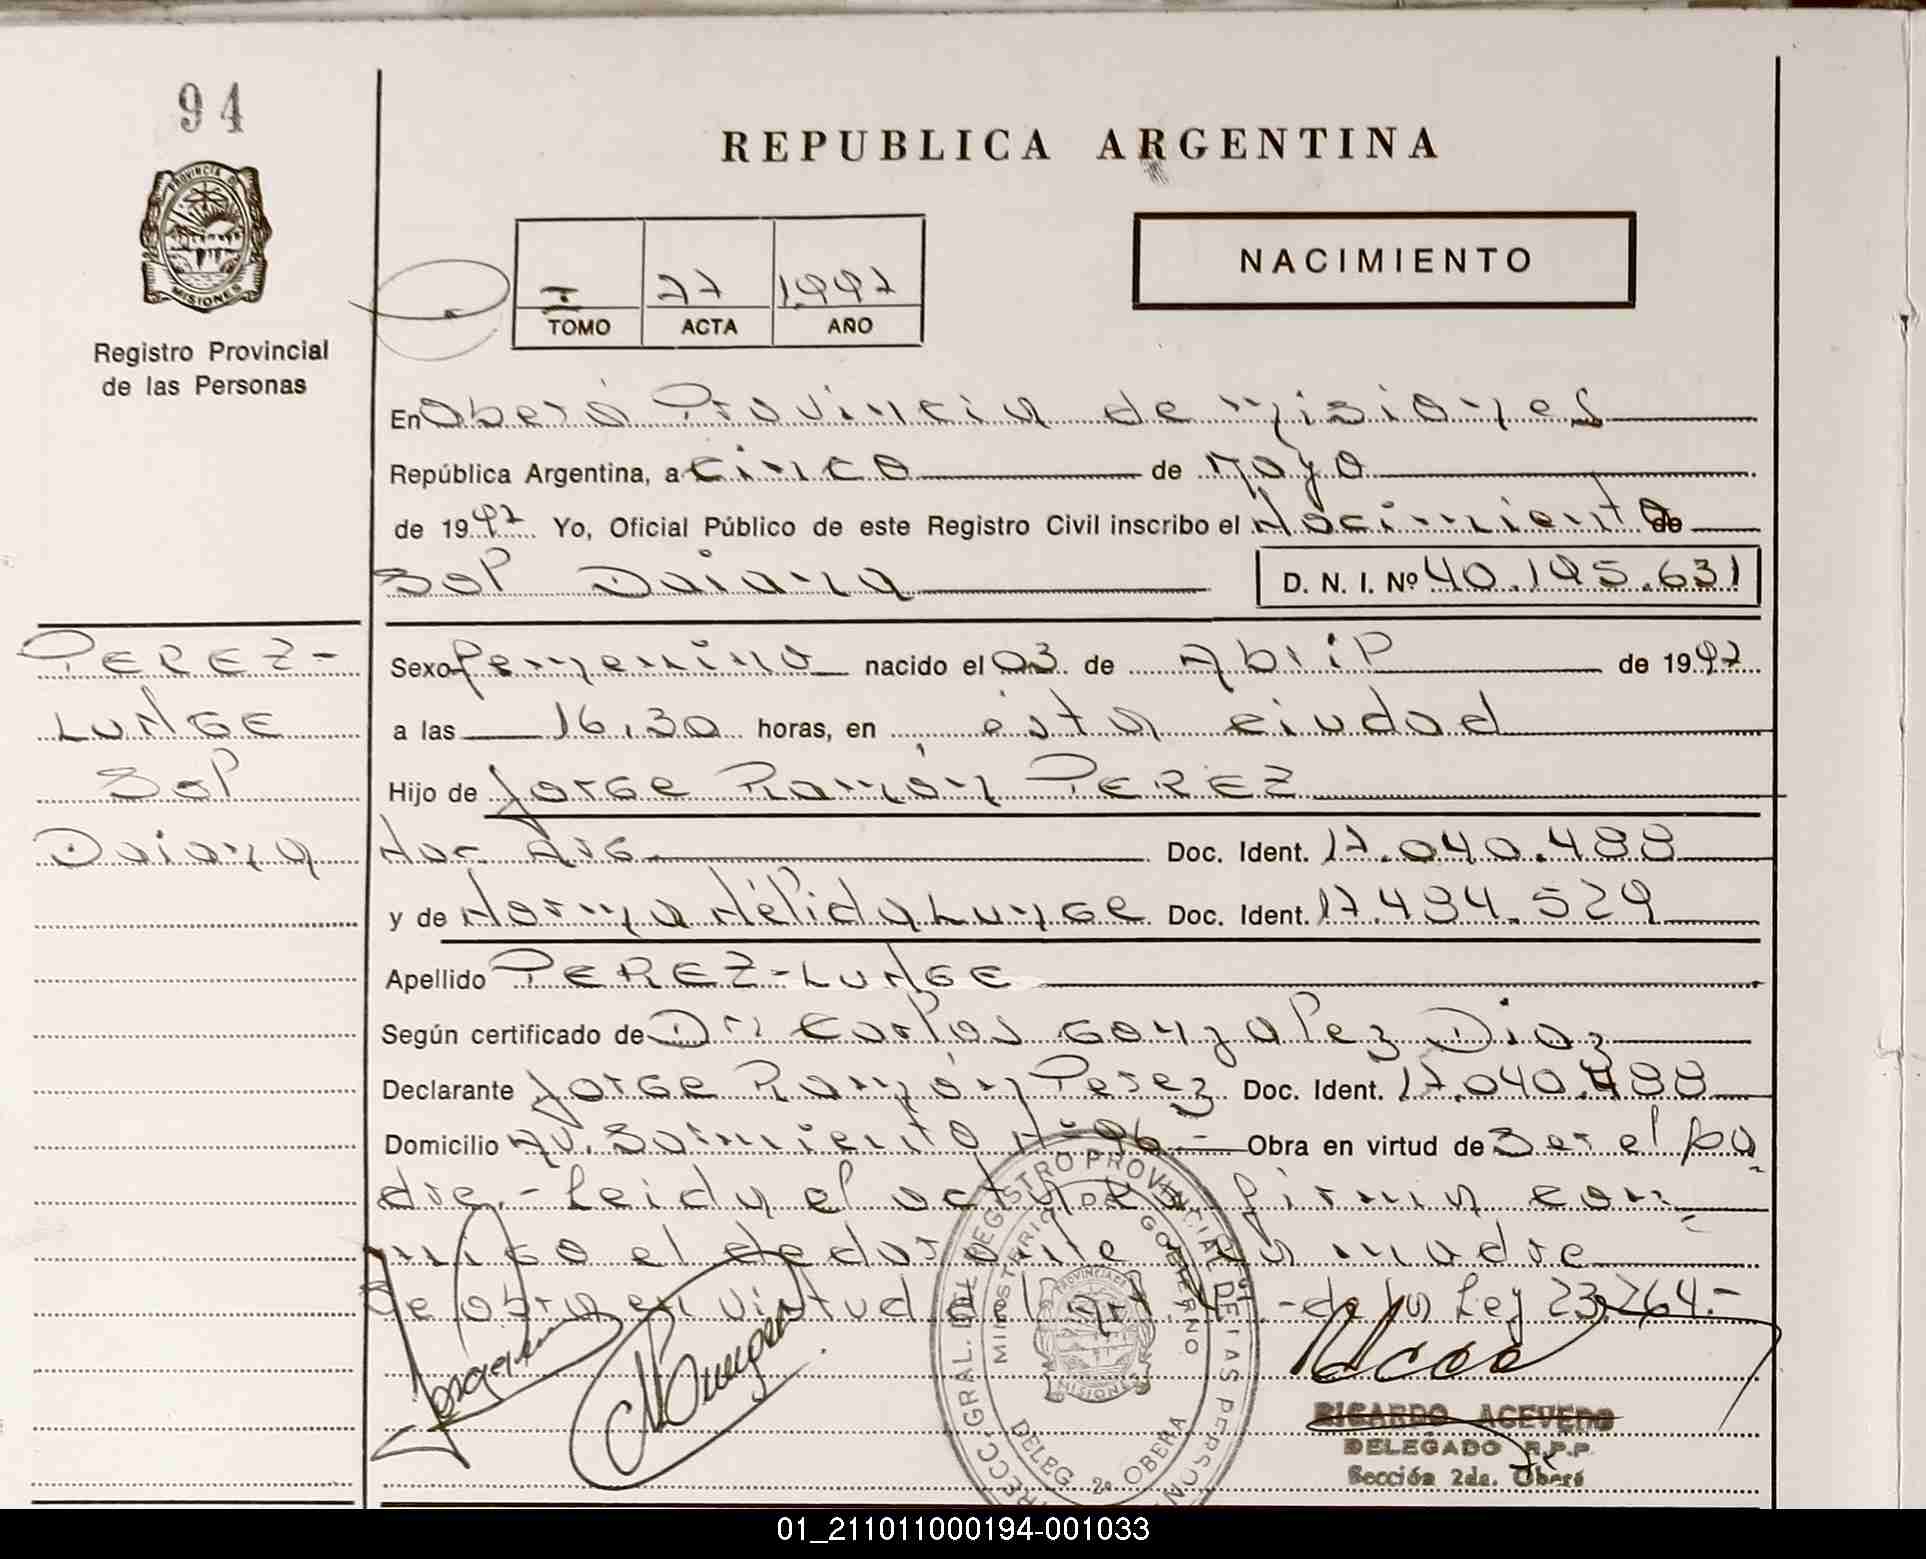 94
REPUBLICA ARGENTINA
PROVINCIA DE
MISIONES
Registro Provincial
de las Personas
I 77 1997
TOMO ACTA AÑO
NACIMIENTO
En Oberá Provincia de Misiones
República Argentina, a cinco de Mayo
de 1997 Yo, Oficial Público de este Registro Civil inscribo el Nacimiento de
Sol Daiana D. N. I. Nº 40.195.631
PEREZ-
LUNGE
Sol
Daiana
Sexo femenino nacido el 03 de Abril de 1997
a las 16,30 horas, en esta ciudad
Hijo de Jorge Ramón PEREZ
Nac. Arg. Doc. Ident. 17.040.488
y de Norma Nélida Lunge Doc. Ident. 17.494.529
Apellido PEREZ-LUNGE
Según certificado de Dr. Carlos Gonzalez Diaz
Declarante Jorge Ramón Perez Doc. Ident. 17.040.488
Domicilio Av. Sarmiento Nº 96.- Obra en virtud de Ser el pa
dre.- Leida el acta la firman con
migo el declarante y la madre
Se obra en virtud del Art. de la Ley 23.264.-
DIRECC. GRAL. DEL REGISTRO PROVINCIAL DE LAS PERSONAS
MINISTERIO DE GOBIERNO
PROVINCIA DE
MISIONES
DELEG. 2º OBERA
RICARDO ACEVEDO
DELEGADO R.P.P.
Sección 2da. Oberá
01_211011000194-001033